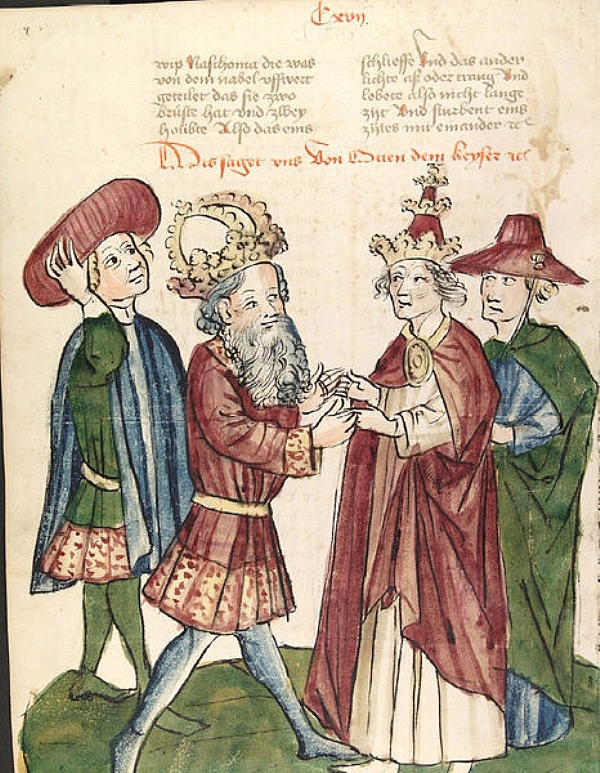 Cxvij.
wip Naschoma die was
von dem nabel vffwert
geteilet das sie zwo
brüste hat vnd zwey
houbte Also das eins
schlieffe vnd das ander
lichte aß oder trang vnd
lebete also nicht lange
zijt vnd sturbent eins
zijtes mit einander ꝛc
Dis saget vns von dem keyser ꝛc